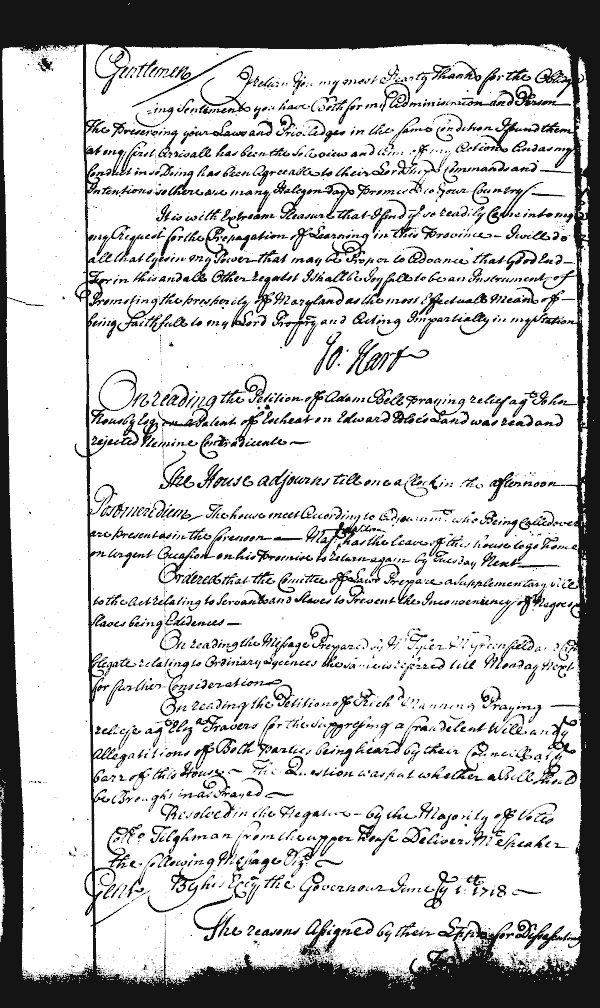 Gentlemen
I Return you my most hearty Thanks for the Oblige
ing Sentiments you have Both for my Administration and Person
The preserving your Laws and Priviledges in the same Condition I found them
at my first Arrivall has been the Sole view and aim of my Actions And as my
Conduct in so Doing has been Agreeable to their Lordships Commands and
Intentions so there are many Halcyon Days Promised to your Country
It is with Extream Pleasure that I find you so readily Come into my
my Request for the Propagation of Learning in this Province I will do
all that lyes in my Power that may be Proper to Advance that Good End
For in this and all Other regards I shall be Joyfull to be an Instrument of
Promoting the prosperity of Maryland as the most Effectuall Means of
being Faithfull to my Lord Propry and Acting Impartially in my Station
Jo: Hart
On reading the Petition of Adam Bell praying relief agt John
Rousby Esq on a Patent of Escheat on Edward Land was read and
rejected Nemine Contradicente
The House adjourns till one a Clock in the afternoon
Post meridiem The house meet According to Adjournmt who Being Called over
are present as in the forenoon has the leave of this house to go home
on Urgent Occasion on his Promise to return again by Tuesday Next
Ordered that the Comittee of Laws Prepare a Supplementary Bill
to the Act relating to Servants and Slaves to Prevent the Inconveniency of Negroes
Slaves being Evidences
On reading the Message Prepared by Mr Tyler Mr Greenfield and
relating to Ordinary Lycences the same is referred till Monday Next
for further Consideration
On reading the Petition of Richd Manning Praying
relief agt Eliza Travers for the suppressing a fraudelent Will and ye
Allegatitions of Both Parties being heard by their Councill att ye
barr of this House The Question was put whether a Bill should
be Brought in as Prayed
Resolved in the Negative by the Majority of Votes
Collo Tilghman from the upper House Delivers Mr Speaker
the following Message Vizt
Gent By his Excy the Governour June ye 1st 1718
The reasons Assigned by their Lopps for Dissassenting